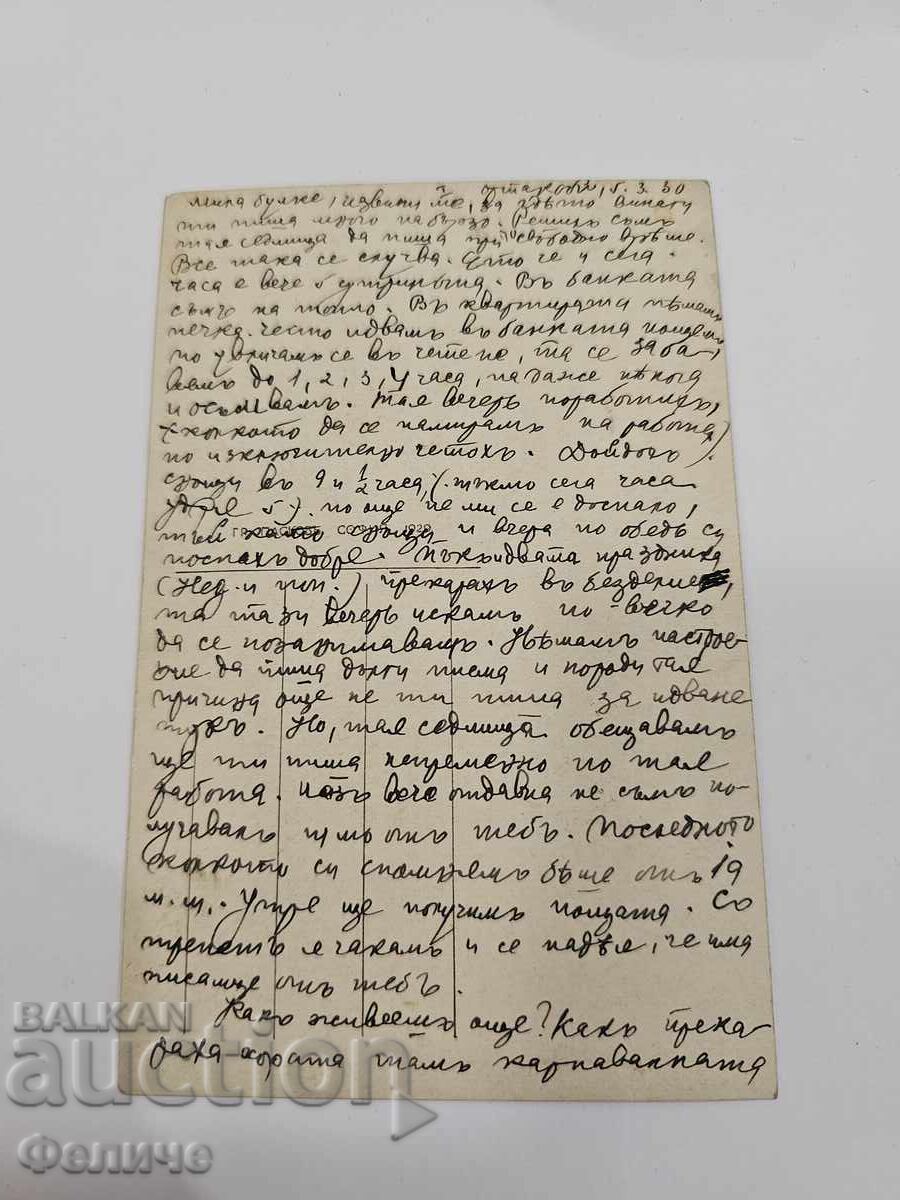 5.3.30
Мила булке, извини ме, за гдѣто винаги
ти пиша много на бързо. Решилъ съмъ
тая седмица да пиша при свободно врѣме.
Все така се случва. Ето че и сега
часа е вече 5 сутриньта. Въ банката
съмъ на топло. Въ квартирата нѣмамъ
печка. Често идвамъ въ банката
но увличамъ се въ четене, та се заба-
вямъ до 1, 2, 3, 4 часа, па даже нѣкога
и осъмвамъ. Тая вечерь поработихъ,
(колкото да се намирамъ на работа)
но изключително четохъ. Дойдохъ
снощи въ 9 и ½ часа, (тъкмо сега часа
удря 5) но още не ми се е доспало,
тъй като снощи и вчера по обедъ си
поспахъ добре. Пъкъ двата празника
(Нед. и пон.) прекарахъ въ бездѣлие,
та тази вечерь искамъ по-вечко
да се позанимавамъ. Нѣмамъ настрое-
ние да пиша дълги писма и поради тая
причина още не ти пиша за идване
тукъ. Но, тая седмица обещавамъ
ще ти пиша непременно по тая
работа. Азъ вече отдавна не съмъ по-
лучавалъ писмо отъ тебъ. Последното
колкото си спомнямъ бѣше отъ 19
м.м. Утре ще получимъ пощата. Съ
трепетъ я чакамъ и се надѣя, че има
писъмце отъ тебъ.
Какъ живѣемъ още? Какъ прека-
раха хората тамъ карнавалната
BALKAN
auction
Феличе